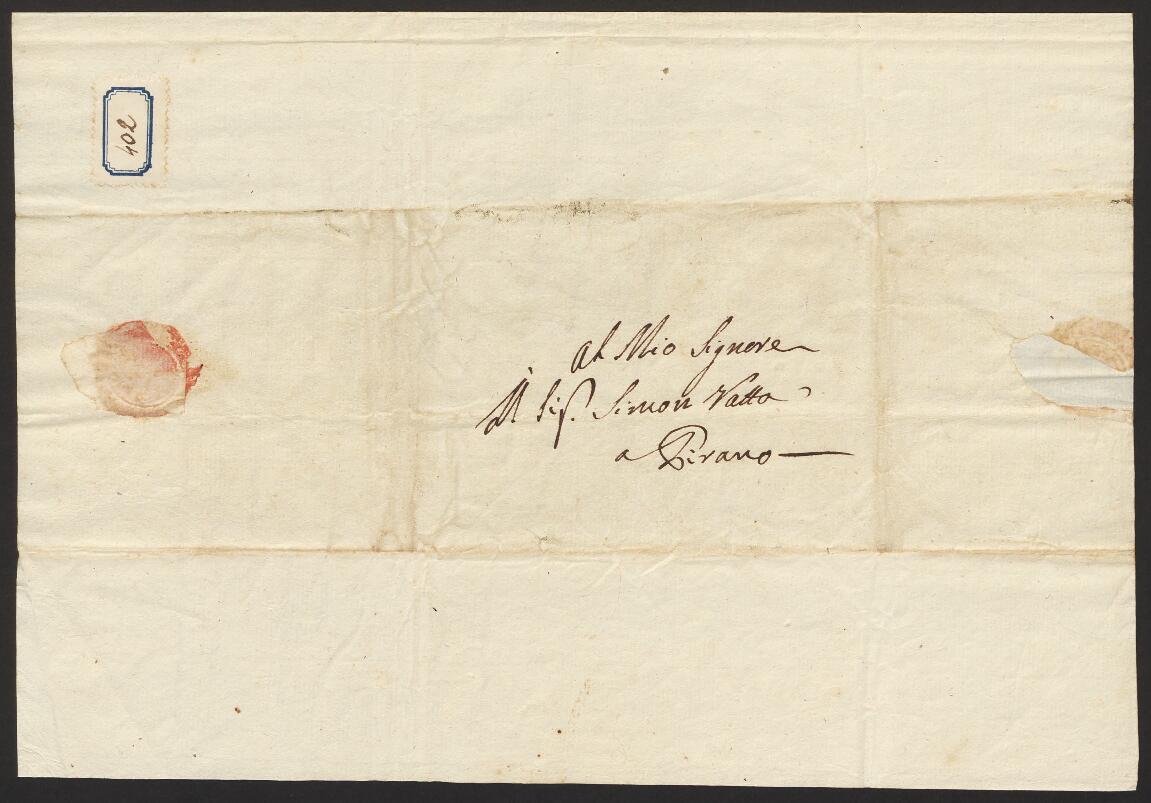 402
Al Mio Signore
Il Sigr. Simon Vatta
a Pirano